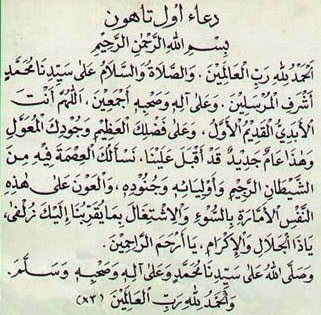 دعاء اول تاهون
بِسْمِ اللهِ الرَّحْمٰنِ الرَّحِيْمِ
اَلْحَمْدُ لِلهِ رَبِّ الْعَالَمِيْنَ، وَالصَّلَاةُ وَالسَّلَامُ عَلَى سَيِّدِنَا مُحَمَّدٍ
أَشْرَفِ الْمُرْسَلِيْنَ، وَعَلَى آلِهِ وَصَحْبِهِ أَجْمَعِيْنَ، اَللّٰهُمَّ أَنْتَ
الْأَبَدِيُّ الْقَدِيْمُ الْأَوَّلُ، وَعَلَى فَضْلِكَ الْعَظِيْمِ وَجُوْدِكَ الْمُعَوَّلِ
وَهٰذَا عَامٌ جَدِيْدٌ قَدْ أَقْبَلَ عَلَيْنَا، نَسْأَلُكَ الْعِصْمَةَ فِيْهِ مِنَ
الشَّيْطَانِ الرَّجِيْمِ وَأَوْلِيَائِهِ وَجُنُوْدِهِ، وَالْعَوْنَ عَلَى هٰذِهِ
النَّفْسِ الْأَمَّارَةِ بِالسُّوْءِ وَالْاِشْتِغَالِ بِمَا يُقَرِّبُنَا إِلَيْكَ زُلْفَى،
يَا ذَا الْجَلَالِ وَالْإِكْرَامِ، يَا أَرْحَمَ الرَّاحِمِيْنَ.
وَصَلَّى اللهُ عَلَى سَيِّدِنَا مُحَمَّدٍ وَعَلَى آلِهِ وَصَحْبِهِ وَسَلَّمَ.
وَالْحَمْدُ لِلهِ رَبِّ الْعَالَمِيْنَ (x٣)